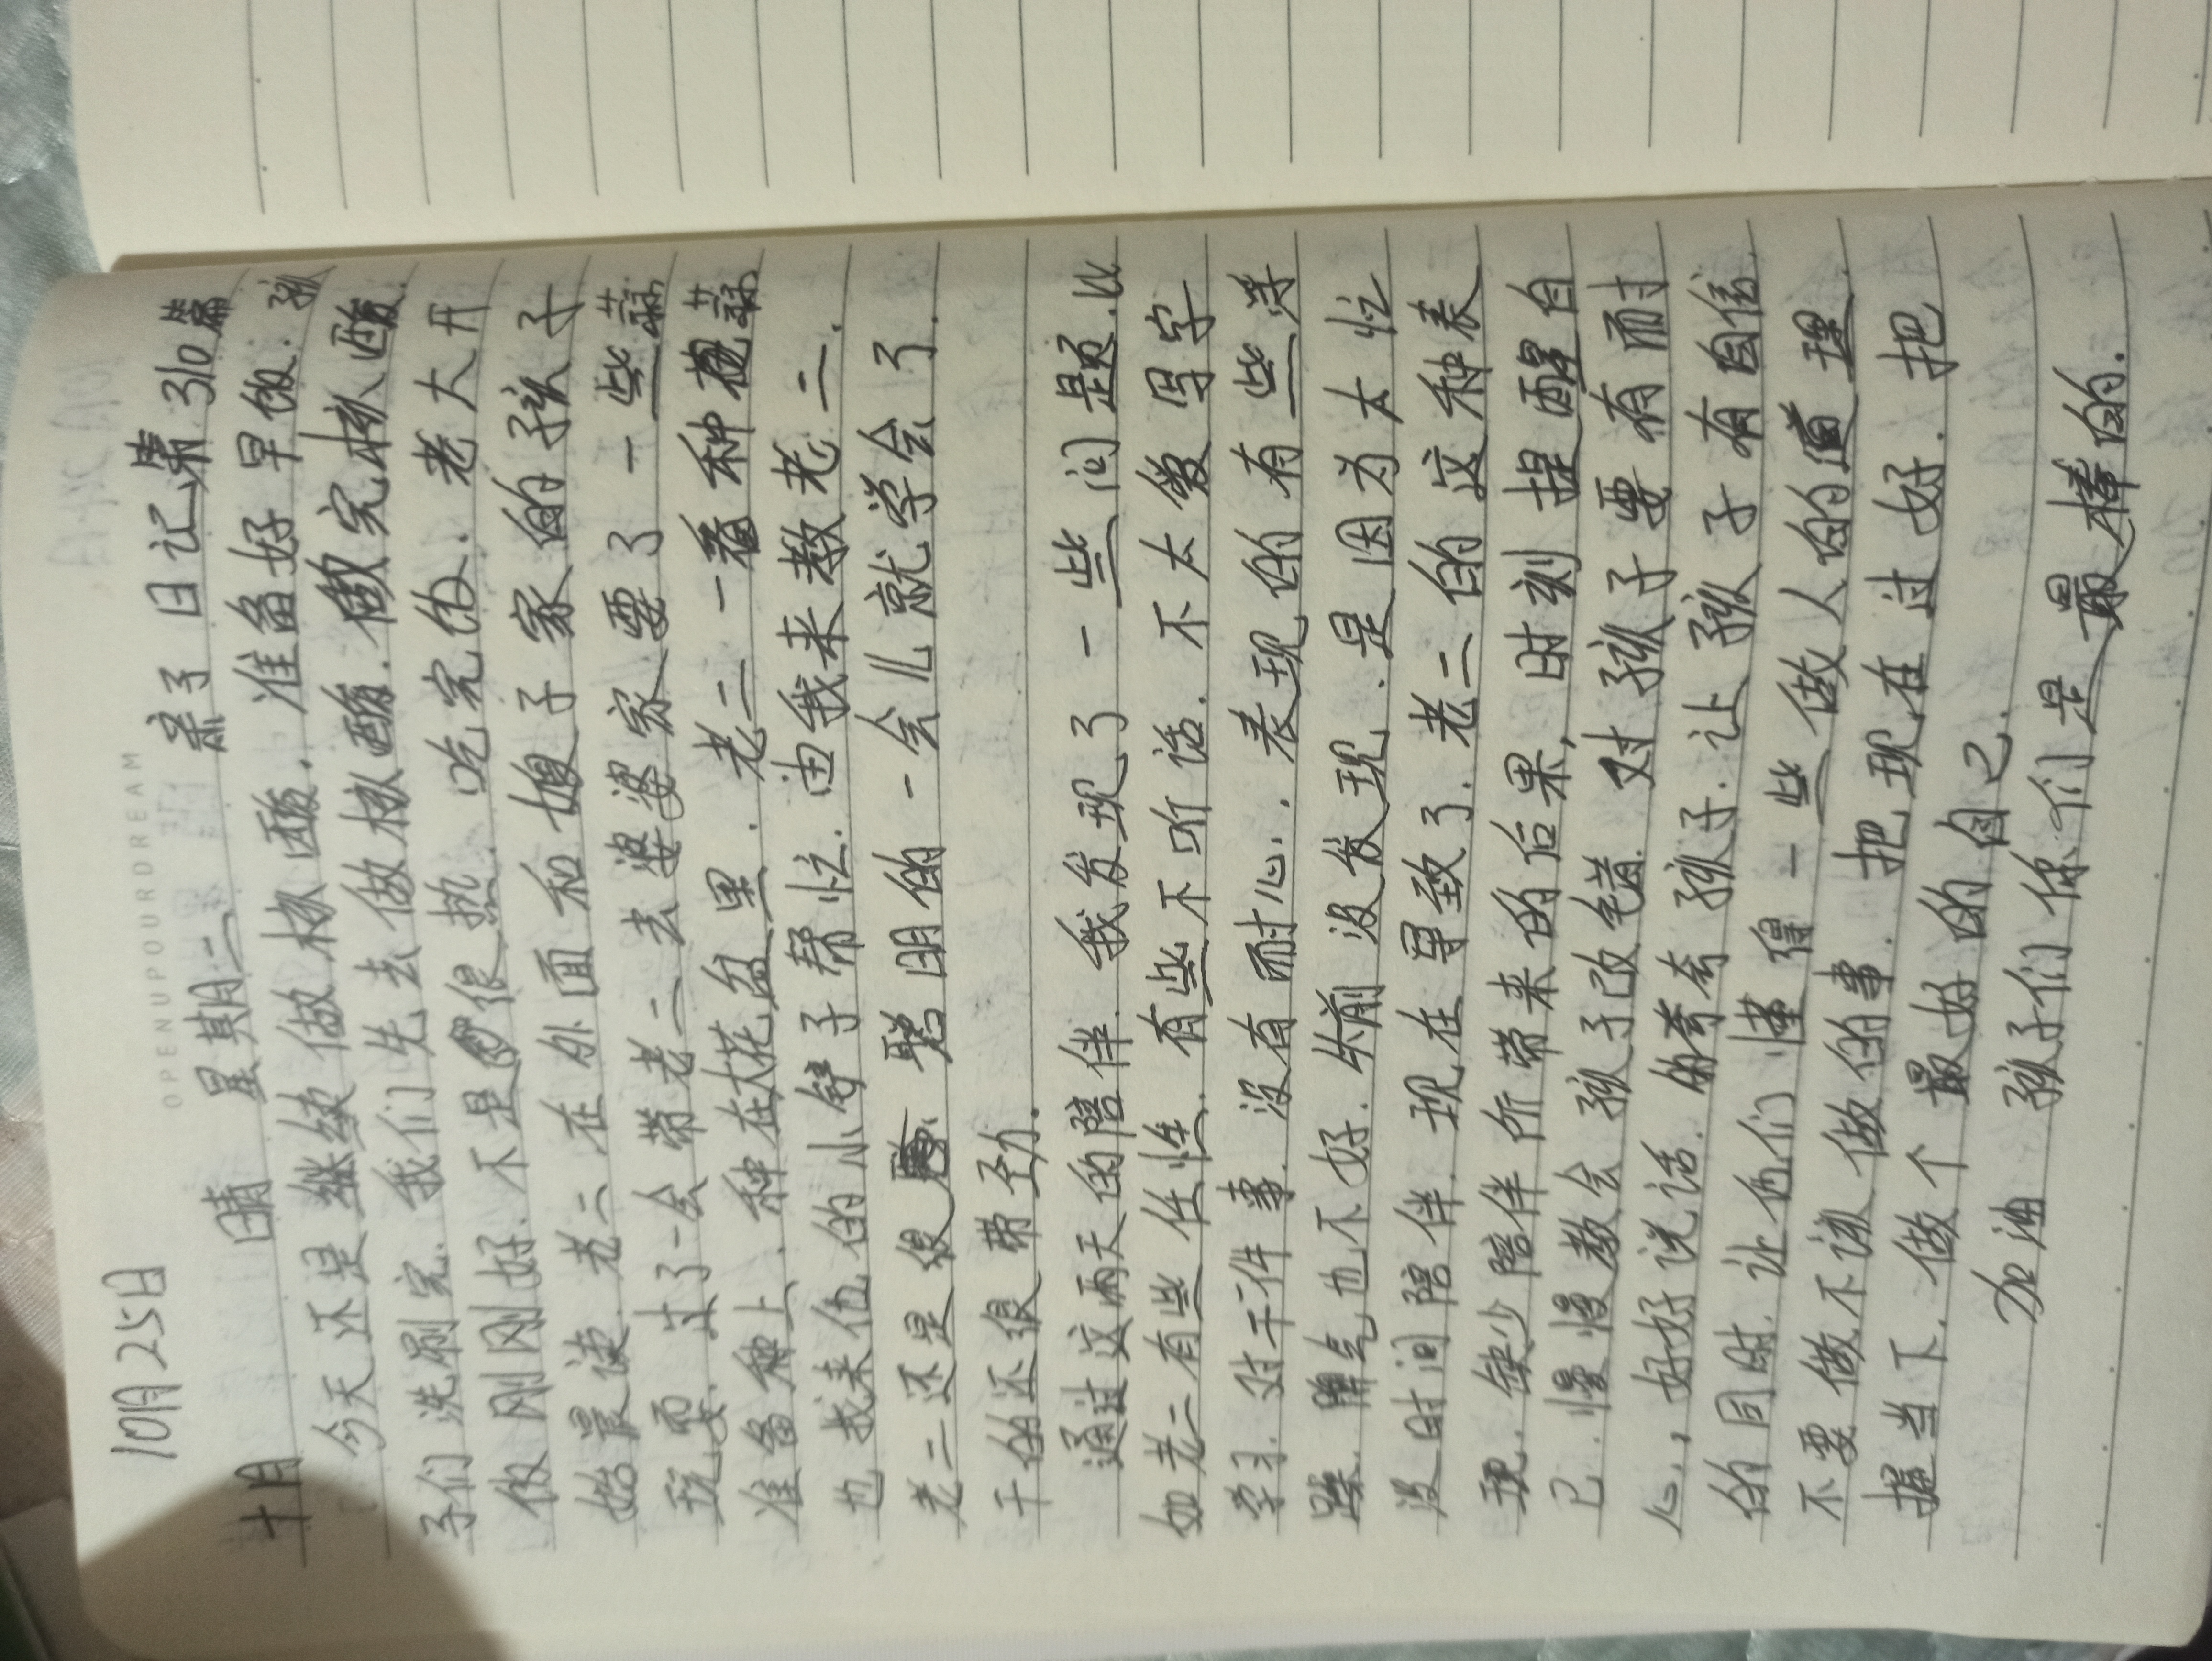 10月25日
OPENUPYOURDREAM
十月 晴 星期二 亲子日记第310篇
今天还是继续做核酸.准备好早饭.孩
子们洗刷完.我们先去做核酸.做完核酸.
饭刚刚好.不是很热.吃完饭.老大开
始晨读.老二在外面和嫂子家的孩子
玩耍.过了一会带老二去婆婆家要了一些蒜
准备种上.种在大花盆里.老二一看种蒜
也找来他的小铲子帮忙.由我来教老二.
老二还是很聪明的一会儿就学会了.
干的还很带劲.
通过这两天的陪伴.我发现了一些问题.比
如老二有些任性.有些不听话.不太爱写字
学习.对干件事.没有耐心.表现的有些浮
躁.脾气也不好.乍前没发现.是因为太忙
没时间陪伴.现在导致了.老二的这种表
现.缺少陪伴所带来的后果,时刻提醒自
己.慢慢教会孩子改错.对孩子要有耐
心,好好说话.的夸夸孩子.让孩子有自信
的同时.让他们懂得一些做人的道理.
不要做不该做的事.把现在过好.把
握当下.做个最好的自己.
加油 孩子们你们是最棒的.